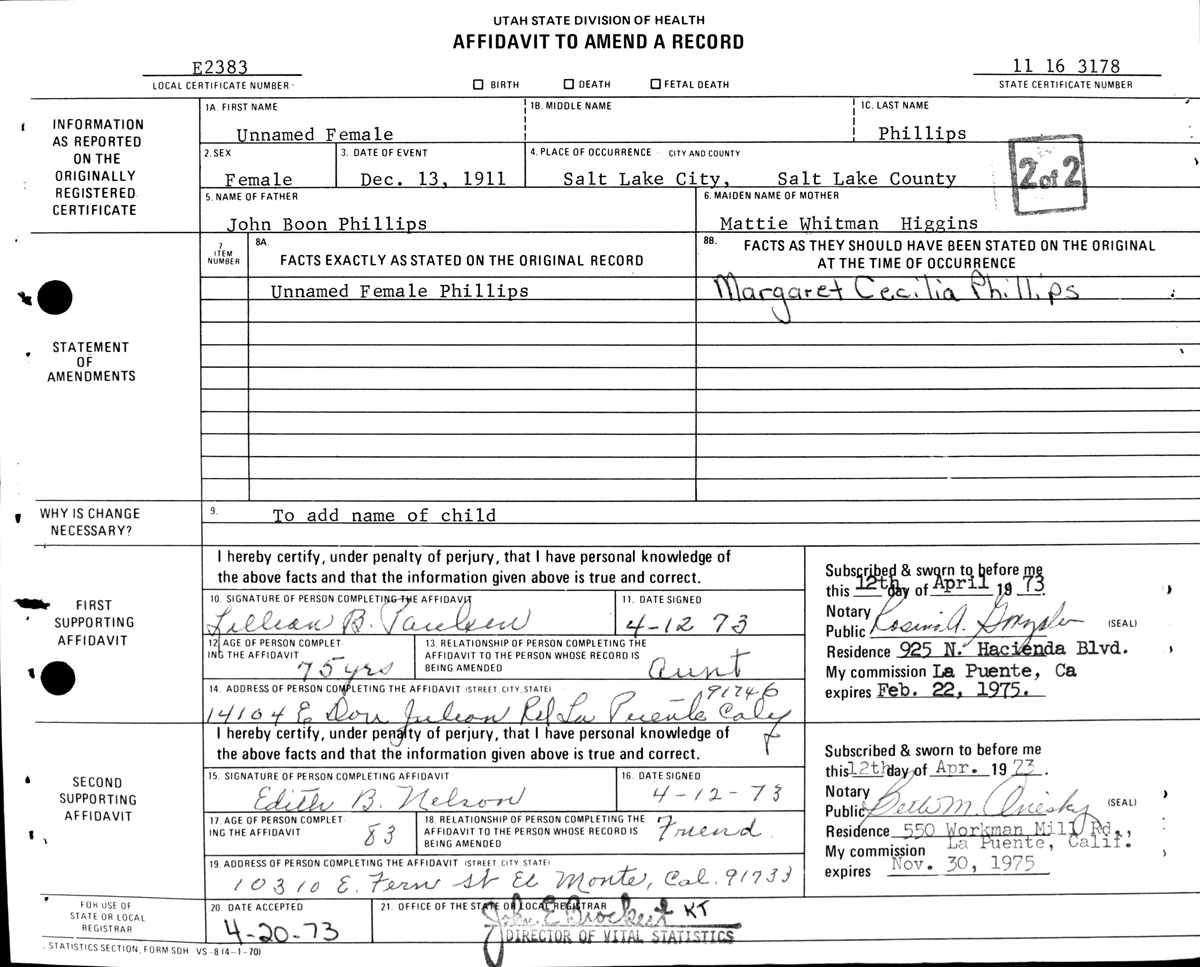 UTAH STATE DIVISION OF HEALTH
AFFIDAVIT TO AMEND A RECORD
E2383
LOCAL CERTIFICATE NUMBER
BIRTH DEATH FETAL DEATH
11 16 3178
STATE CERTIFICATE NUMBER
INFORMATION
AS REPORTED
ON THE
ORIGINALLY
REGISTERED
CERTIFICATE
1A. FIRST NAME
Unnamed Female
1B. MIDDLE NAME
1C. LAST NAME
Phillips
2. SEX
Female
3. DATE OF EVENT
Dec. 13, 1911
4. PLACE OF OCCURRENCE CITY AND COUNTY
Salt Lake City, Salt Lake County
2 of 2
5. NAME OF FATHER
John Boon Phillips
6. MAIDEN NAME OF MOTHER
Mattie Whitman Higgins
STATEMENT
OF
AMENDMENTS
7
ITEM
NUMBER
8A.
FACTS EXACTLY AS STATED ON THE ORIGINAL RECORD
8B. FACTS AS THEY SHOULD HAVE BEEN STATED ON THE ORIGINAL
AT THE TIME OF OCCURRENCE
Unnamed Female Phillips
Margaret Cecilia Phillips
WHY IS CHANGE
NECESSARY?
9. To add name of child
FIRST
SUPPORTING
AFFIDAVIT
I hereby certify, under penalty of perjury, that I have personal knowledge of
the above facts and that the information given above is true and correct.
10. SIGNATURE OF PERSON COMPLETING THE AFFIDAVIT
Lillian B. Paulsen
11. DATE SIGNED
4-12 73
12. AGE OF PERSON COMPLET-
ING THE AFFIDAVIT
75 yrs
13. RELATIONSHIP OF PERSON COMPLETING THE
AFFIDAVIT TO THE PERSON WHOSE RECORD IS
BEING AMENDED
Aunt
14. ADDRESS OF PERSON COMPLETING THE AFFIDAVIT (STREET, CITY, STATE)
14104 E Don Julian Rd La Puente Calif
91746
Subscribed & sworn to before me
this 12th day of April 19 73.
Notary
Public (SEAL)
Residence 925 N. Hacienda Blvd.
My commission La Puente, Ca
expires Feb. 22, 1975.
SECOND
SUPPORTING
AFFIDAVIT
I hereby certify, under penalty of perjury, that I have personal knowledge of
the above facts and that the information given above is true and correct.
15. SIGNATURE OF PERSON COMPLETING AFFIDAVIT
Edith B. Nelson
16. DATE SIGNED
4-12-73
17. AGE OF PERSON COMPLET-
ING THE AFFIDAVIT
83
18. RELATIONSHIP OF PERSON COMPLETING THE
AFFIDAVIT TO THE PERSON WHOSE RECORD IS
BEING AMENDED
Friend.
19. ADDRESS OF PERSON COMPLETING THE AFFIDAVIT (STREET, CITY, STATE)
10310 E. Fern St El Monte, Cal. 91733
Subscribed & sworn to before me
this 12th day of Apr. 19 73.
Notary
Public (SEAL)
Residence 550 Workman Mill Rd.,
My commission La Puente, Calif.
expires Nov. 30, 1975
FOR USE OF
STATE OR LOCAL
REGISTRAR
20. DATE ACCEPTED
4-20-73
21. OFFICE OF THE STATE OR LOCAL REGISTRAR
John E Brockert KT
DIRECTOR OF VITAL STATISTICS
STATISTICS SECTION, FORM SDH VS-8 (4-1-70)